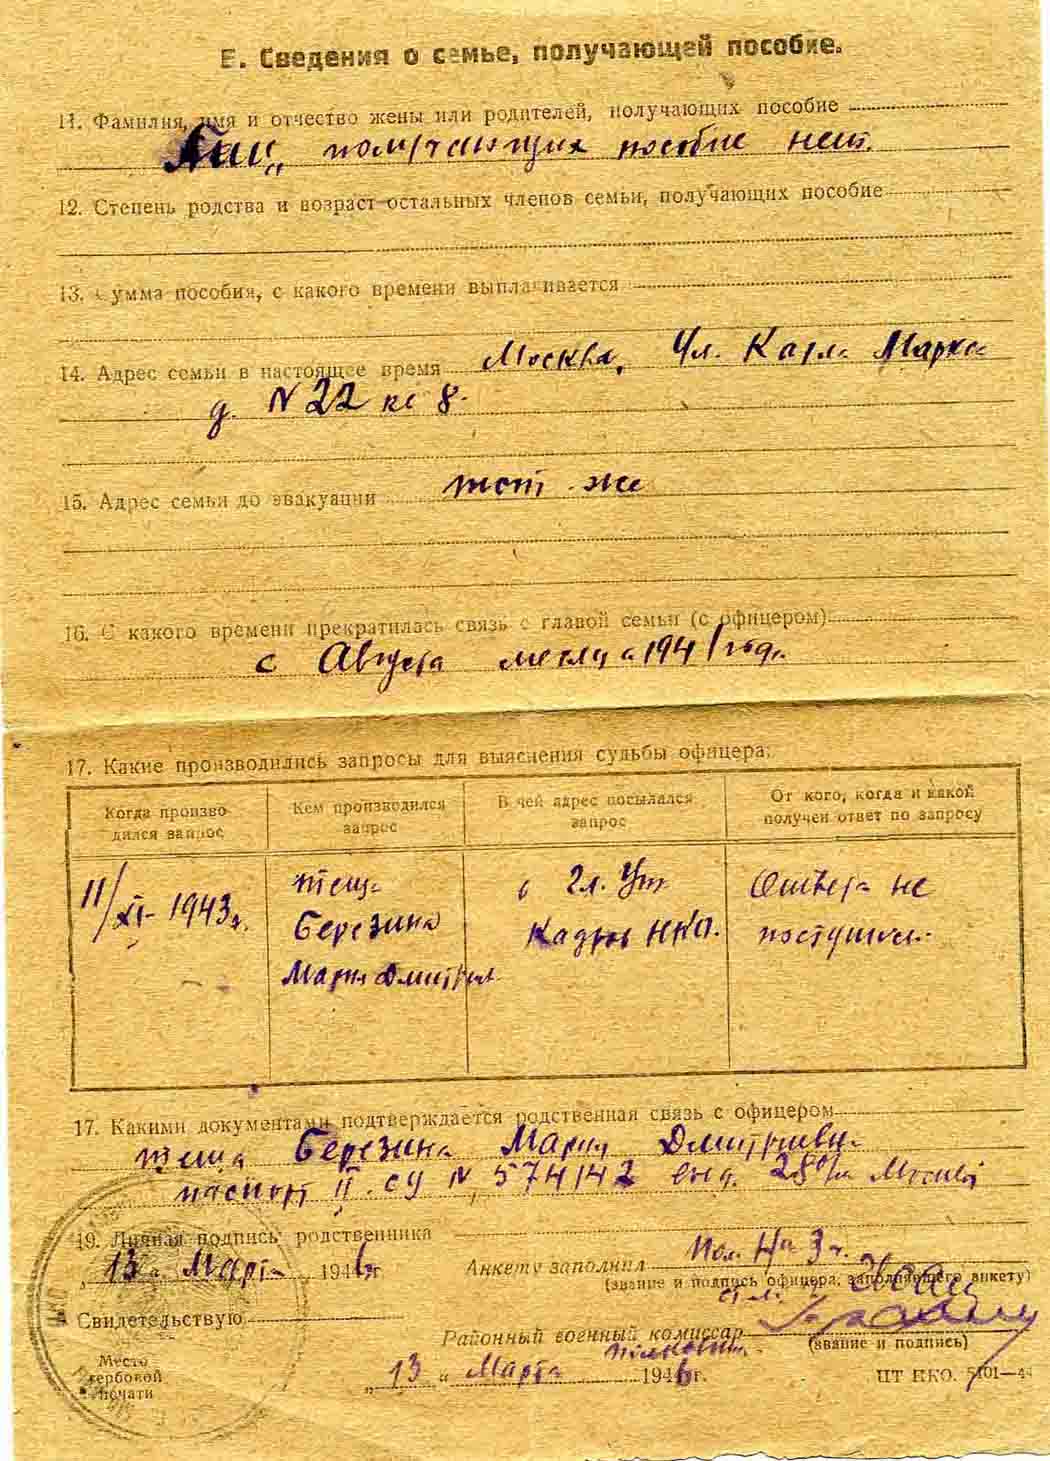 Е. Сведения о семье, получающей пособие.
11. Фамилия, имя и отчество жены или родителей, получающих пособие
получающих пособие нет.
12. Степень родства и возраст остальных членов семьи, получающих пособие
13. Сумма пособия, с какого времени выплачивается
14. Адрес семьи в настоящее время Москва, Ул. Карла Маркса
д. N 22 кв 8.
15. Адрес семьи до эвакуации тот же
16. С какого времени прекратилась связь с главой семьи (с офицером)
с Августа месяца 1941 года
17. Какие производились запросы для выяснения судьбы офицера:
Когда произво-
дился запрос
Кем производился
запрос
В чей адрес посылался
запрос
От кого, когда и какой
получен ответ по запросу
11/XI-1943г.
теща
Березина
Мария Дмитриев
в Гл. Упр
Кадров НКО.
Ответа не
поступило
17. Какими документами подтверждается родственная связь с офицером
теща Березина Мария Дмитриевна
паспорт II. СУ N 574142 выд. 28 о/м Москвы
19. Личная подпись родственника
"13" Марта 1946г
Анкету заполнил
(звание и подпись офицера, заполнявшего анкету)
Свидетельствую
Районный военный комиссар
полковник
(звание и подпись)
Место
гербовой
печати
"13" Марта 1946г.
ЦТ НКО. 5101—44